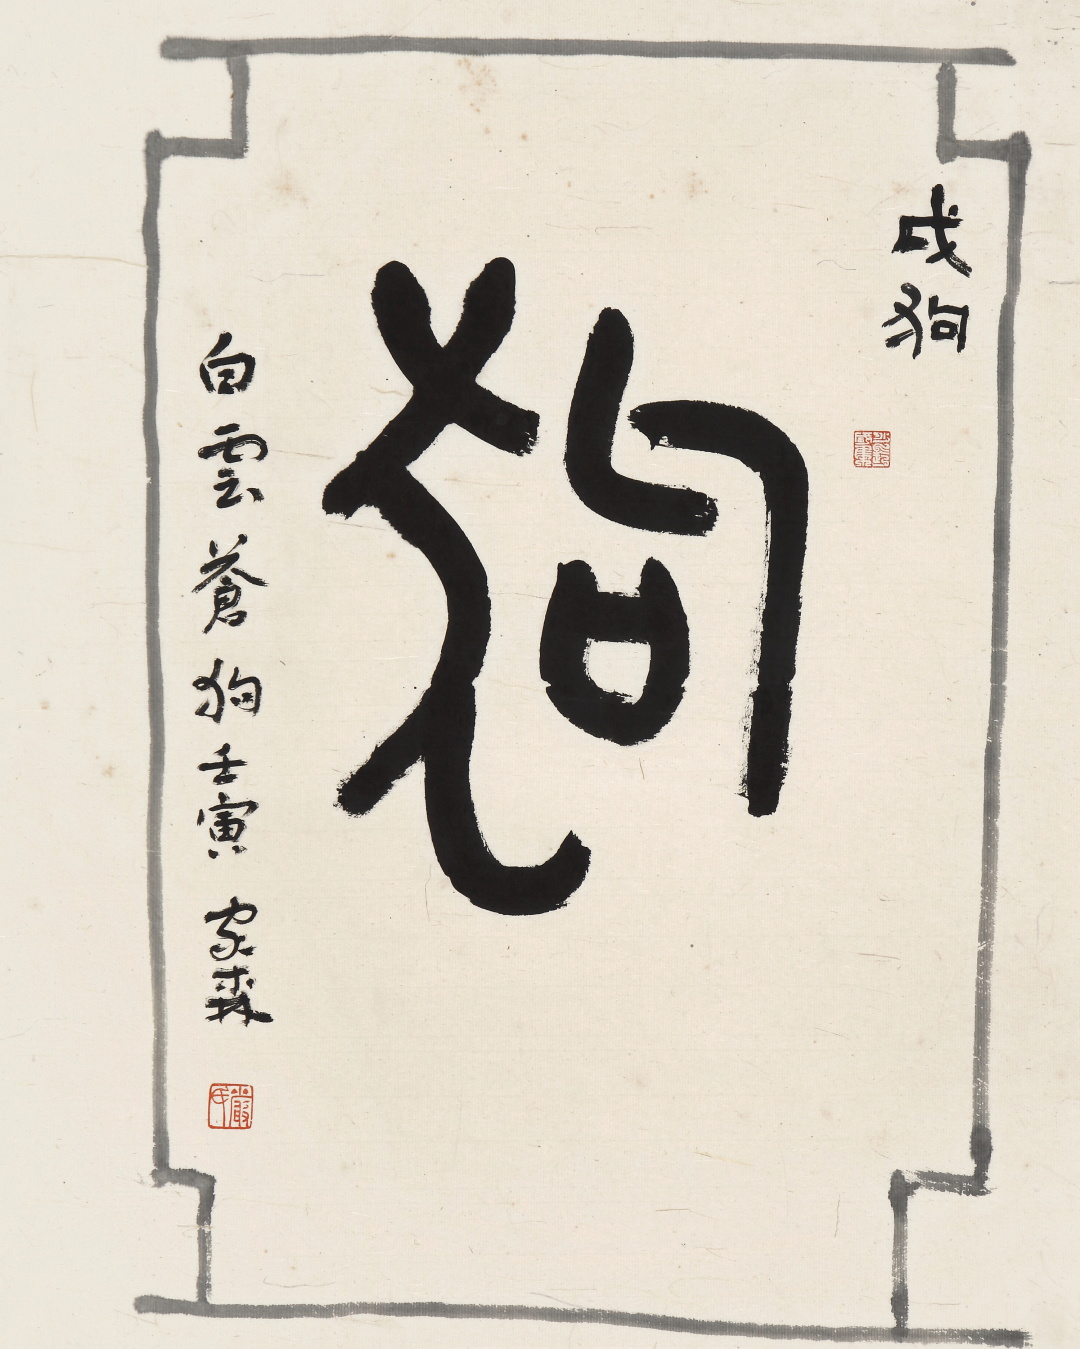 戌狗
狗
白雲蒼狗壬寅 家森